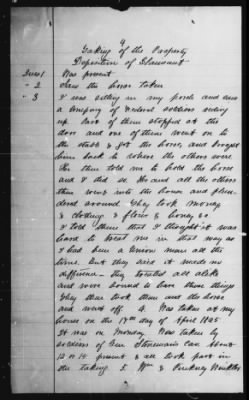 4
Taking of the Property
Deposition of Claimant
Ques 1 Was present
- 2 Saw the horse taken
- 3 I was sitting in my porch and saw
a company of Federal soldiers riding
up. Part of them stopped at the
door and one of them went on to
the stable & got the horse, and brought
him back to where the others were
He then told me to hold the horse
and I did so. He and all the others
then went into the house and plun-
dered around They took money
& clothing & flour & honey &c.
I told them that I thought it was
hard to treat me in that way as
I had been a Union man all the
time. But they said it made no
difference - they treated all alike
and were bound to have these things
They then took them and the horse
and went off 4. Was taken at my
house on the 17th day of April 1865
It was on Monday Was taken by
soldiers of Gen Stoneman's Cav. about
12 or 15 present & all took part in
the taking 5. Wm & Pinkney Winkler